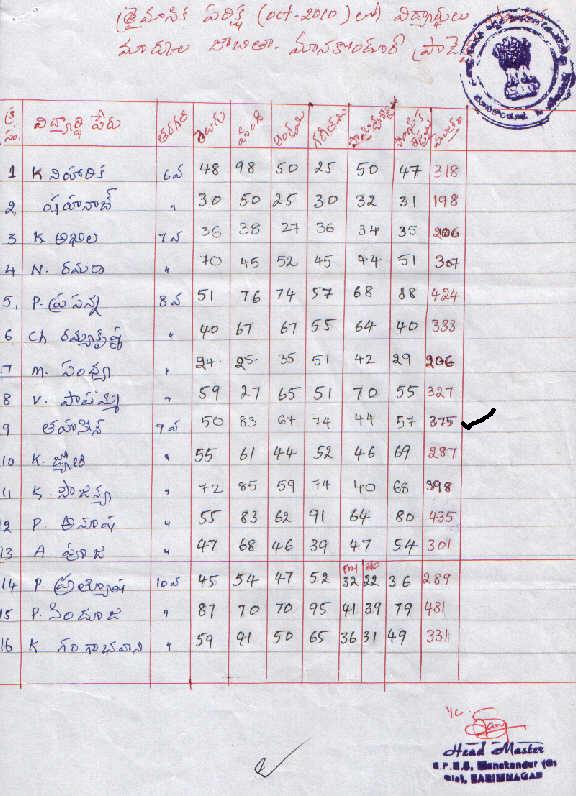 త్రైమాసిక పరీక్ష (oct-2010) లో విద్యార్థులు
మార్కుల జాబితా. మానకొండూర్
క్ర సం. విద్యార్థి పేరు తరగతి తెలుగు హింది ఇంగ్లీషు గణితము
1 K నిహారిక 6వ 48 98 50 25 50 47 318
2 షహనాజ్ " 30 50 25 30 32 31 198
3 K అఖిల 7వ 36 38 27 36 34 35 206
4 N. రమాదే " 70 45 52 45 44 51 307
5. P. ప్రసన్న 8వ 51 76 74 57 68 88 424
6 Ch " 40 67 67 55 64 40 333
7 M. సంధ్య " 24 25 35 51 42 29 206
8 V. పోచమ్మ " 59 27 65 51 70 55 327
9 తహసీన్ 9వ 50 83 67 74 44 57 375
10 K. జ్యోతి " 55 61 44 52 46 69 287
11 K. సౌజన్య " 72 85 59 74 40 68 398
12 P. అనూష " 55 83 62 91 64 80 435
13 A పూజ " 47 68 46 39 47 54 301
14 P ప్రత్యూష 10వ 45 54 47 52 32 22 36 289
15 P. సింధూజ " 87 70 70 95 41 39 79 481
16 K గంగాభవాని " 59 91 50 65 36 31 49 331
Head Master
Manakondur
Dist. KARIMNAGAR